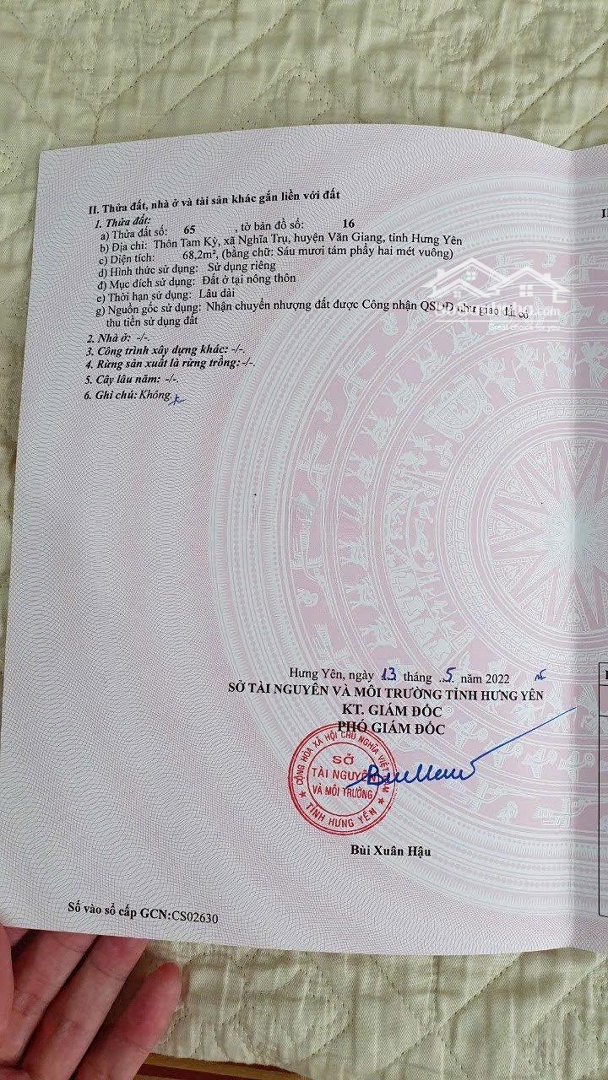 II. Thửa đất, nhà ở và tài sản khác gắn liền với đất
1. Thửa đất:
a) Thửa đất số: 65 , tờ bản đồ số: 16
b) Địa chỉ: Thôn Tam Kỳ, xã Nghĩa Trụ, huyện Văn Giang, tỉnh Hưng Yên
c) Diện tích: 68,2m², (bằng chữ: Sáu mươi tám phẩy hai mét vuông)
d) Hình thức sử dụng: Sử dụng riêng
đ) Mục đích sử dụng: Đất ở tại nông thôn
e) Thời hạn sử dụng: Lâu dài
g) Nguồn gốc sử dụng: Nhận chuyển nhượng đất được Công nhận QSDĐ như giao đất có
thu tiền sử dụng đất
2. Nhà ở: -/-.
3. Công trình xây dựng khác: -/-.
4. Rừng sản xuất là rừng trồng: -/-.
5. Cây lâu năm: -/-.
6. Ghi chú: Không.
Hưng Yên, ngày 13 tháng 5 năm 2022
SỞ TÀI NGUYÊN VÀ MÔI TRƯỜNG TỈNH HƯNG YÊN
KT. GIÁM ĐỐC
PHÓ GIÁM ĐỐC
CỘNG HÒA XÃ HỘI CHỦ NGHĨA VIỆT NAM
SỞ
TÀI NGUYÊN
VÀ MÔI TRƯỜNG
TỈNH HƯNG YÊN
Bùi Xuân Hậu
Số vào sổ cấp GCN:CS02630